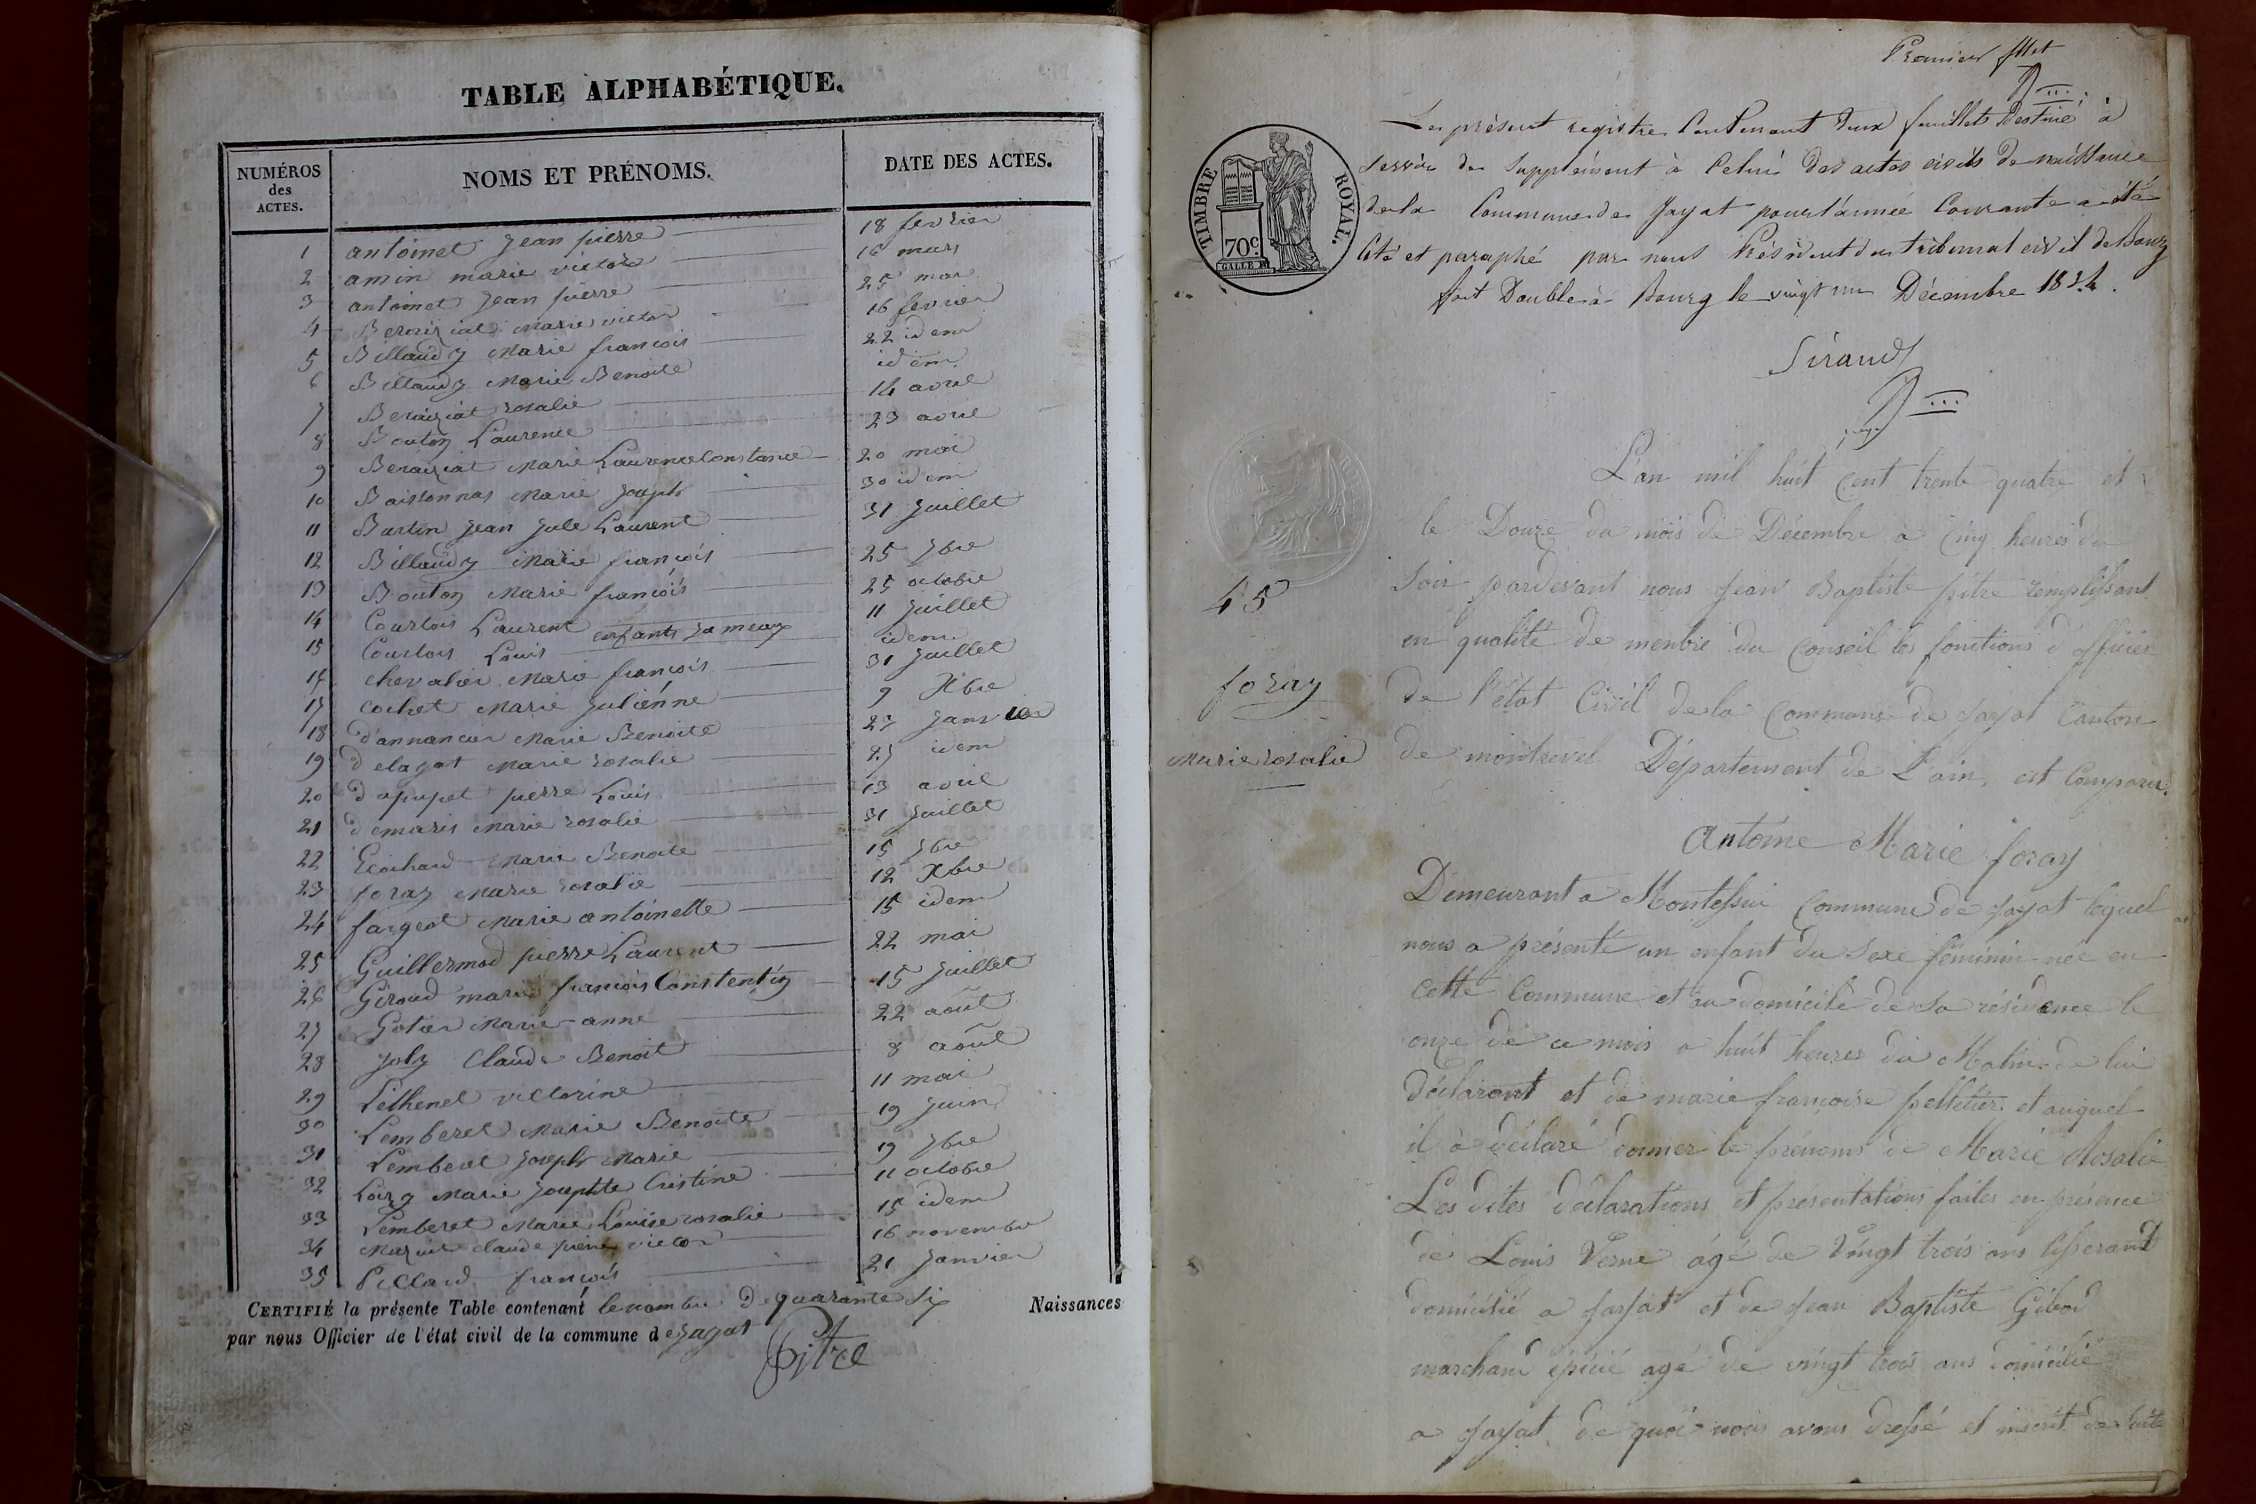 TABLE ALPHABÉTIQUE.
NUMÉROS des ACTES. NOMS ET PRÉNOMS. DATE DES ACTES.
1 antoinet Jean pierre 18 fevrier
2 amin marie victor 16 mars
3 antoinet Jean pierre 25 mai
4 Beraiziat Marie victor 16 fevrier
5 Billaudy Marie françois 22 idem
6 Billaudy Marie Benoite idem
7 Beraiziat rosalie 14 avril
8 Bouton Laurence 23 avril
9 Beraiziat Marie Laurence Constance 20 mai
10 Marie Joseph 30 idem
11 Bastin Jean Jule Laurent 31 Juillet
12 Billaudy Marie françois 25 7bre
13 Bouton Marie françois 25 octobre
14 Courtois Laurent 11 Juillet
enfants Jameaux
15 Courtois Louis idem
16 chevalier Marie françois 31 Juillet
17 cochet Marie Julienne 9 Xbre
18 Marie Benoite 27 Janvier
19 delayat Marie rosalie 27 idem
20 dapupet pierre Louis 13 avril
21 demaris Marie rosalie 31 Juillet
22 Ecochard Marie Benoite 15 7bre
23 foray Marie rosalie 12 Xbre
24 fargeot Marie antoinette 15 idem
25 Guillermod pierre Laurent 22 mai
26 Giroud marie françois Constentin 15 Juillet
27 Gotier Marie-anne 22 août
28 Joly Claude Benoit 8 août
29 Lethenet victorine 11 mai
30 Lemberet Marie Benoite 19 Juin
31 Lemberet Joseph Marie 19 7bre
32 Marie Josephte Cristine 11 octobre
33 Lemberet Marie Louise rosalie 15 idem
34 claude pierre victor 16 novembre
35 Pillard françois 21 Janvier
CERTIFIÉ la présente Table contenant le nombre De quarante Six Naissances
par nous Officier de l'état civil de la commune de Jayat
Pitre
Premier fllet
Le présent registre Contenant Deux feuillets Destiné à
servir de Supplément à Celui des actes civils de naissance
de la Commune de Jayat pour l'année Courante a été
Coté et paraphé par nous Président du tribunal civil de Bourg
fait Double à Bourg le vingt un Décembre 1834.
TIMBRE ROYAL.
70c
Sirand
L'an mil huit Cent trente quatre et
le Douze du mois de Décembre à Cinq heures du
Soir pardevant nous Jean Baptiste pitre remplissant
en qualité de membre du Conseil les fonctions d'officier
de l'état Civil de la Commune de Jayat Canton
de montrevel Département de L'ain, est Comparu.
45
foray
Marie rosalie
Antoine Marie foray
Demeurant a Montessui Commune de Jayat lequel
nous a présenté un enfant du Sexe féminin née en
Cette Commune et au domicile de Sa résidence le
onze de ce mois a huit heures du Matin de lui
déclarant et de marie françoise pelletier et auquel
il à déclaré donner le prénoms de Marie Rosalie
Les dites déclarations et présentations faites en présence
de Louis Verne âgé de Vingt trois ans tisserand
domicilié a Jayat et de Jean Baptiste Gibod
marchand épicié agé de vingt trois ans domicilié
a Jayat, de quoi nous avons dressé et inscrit de suite